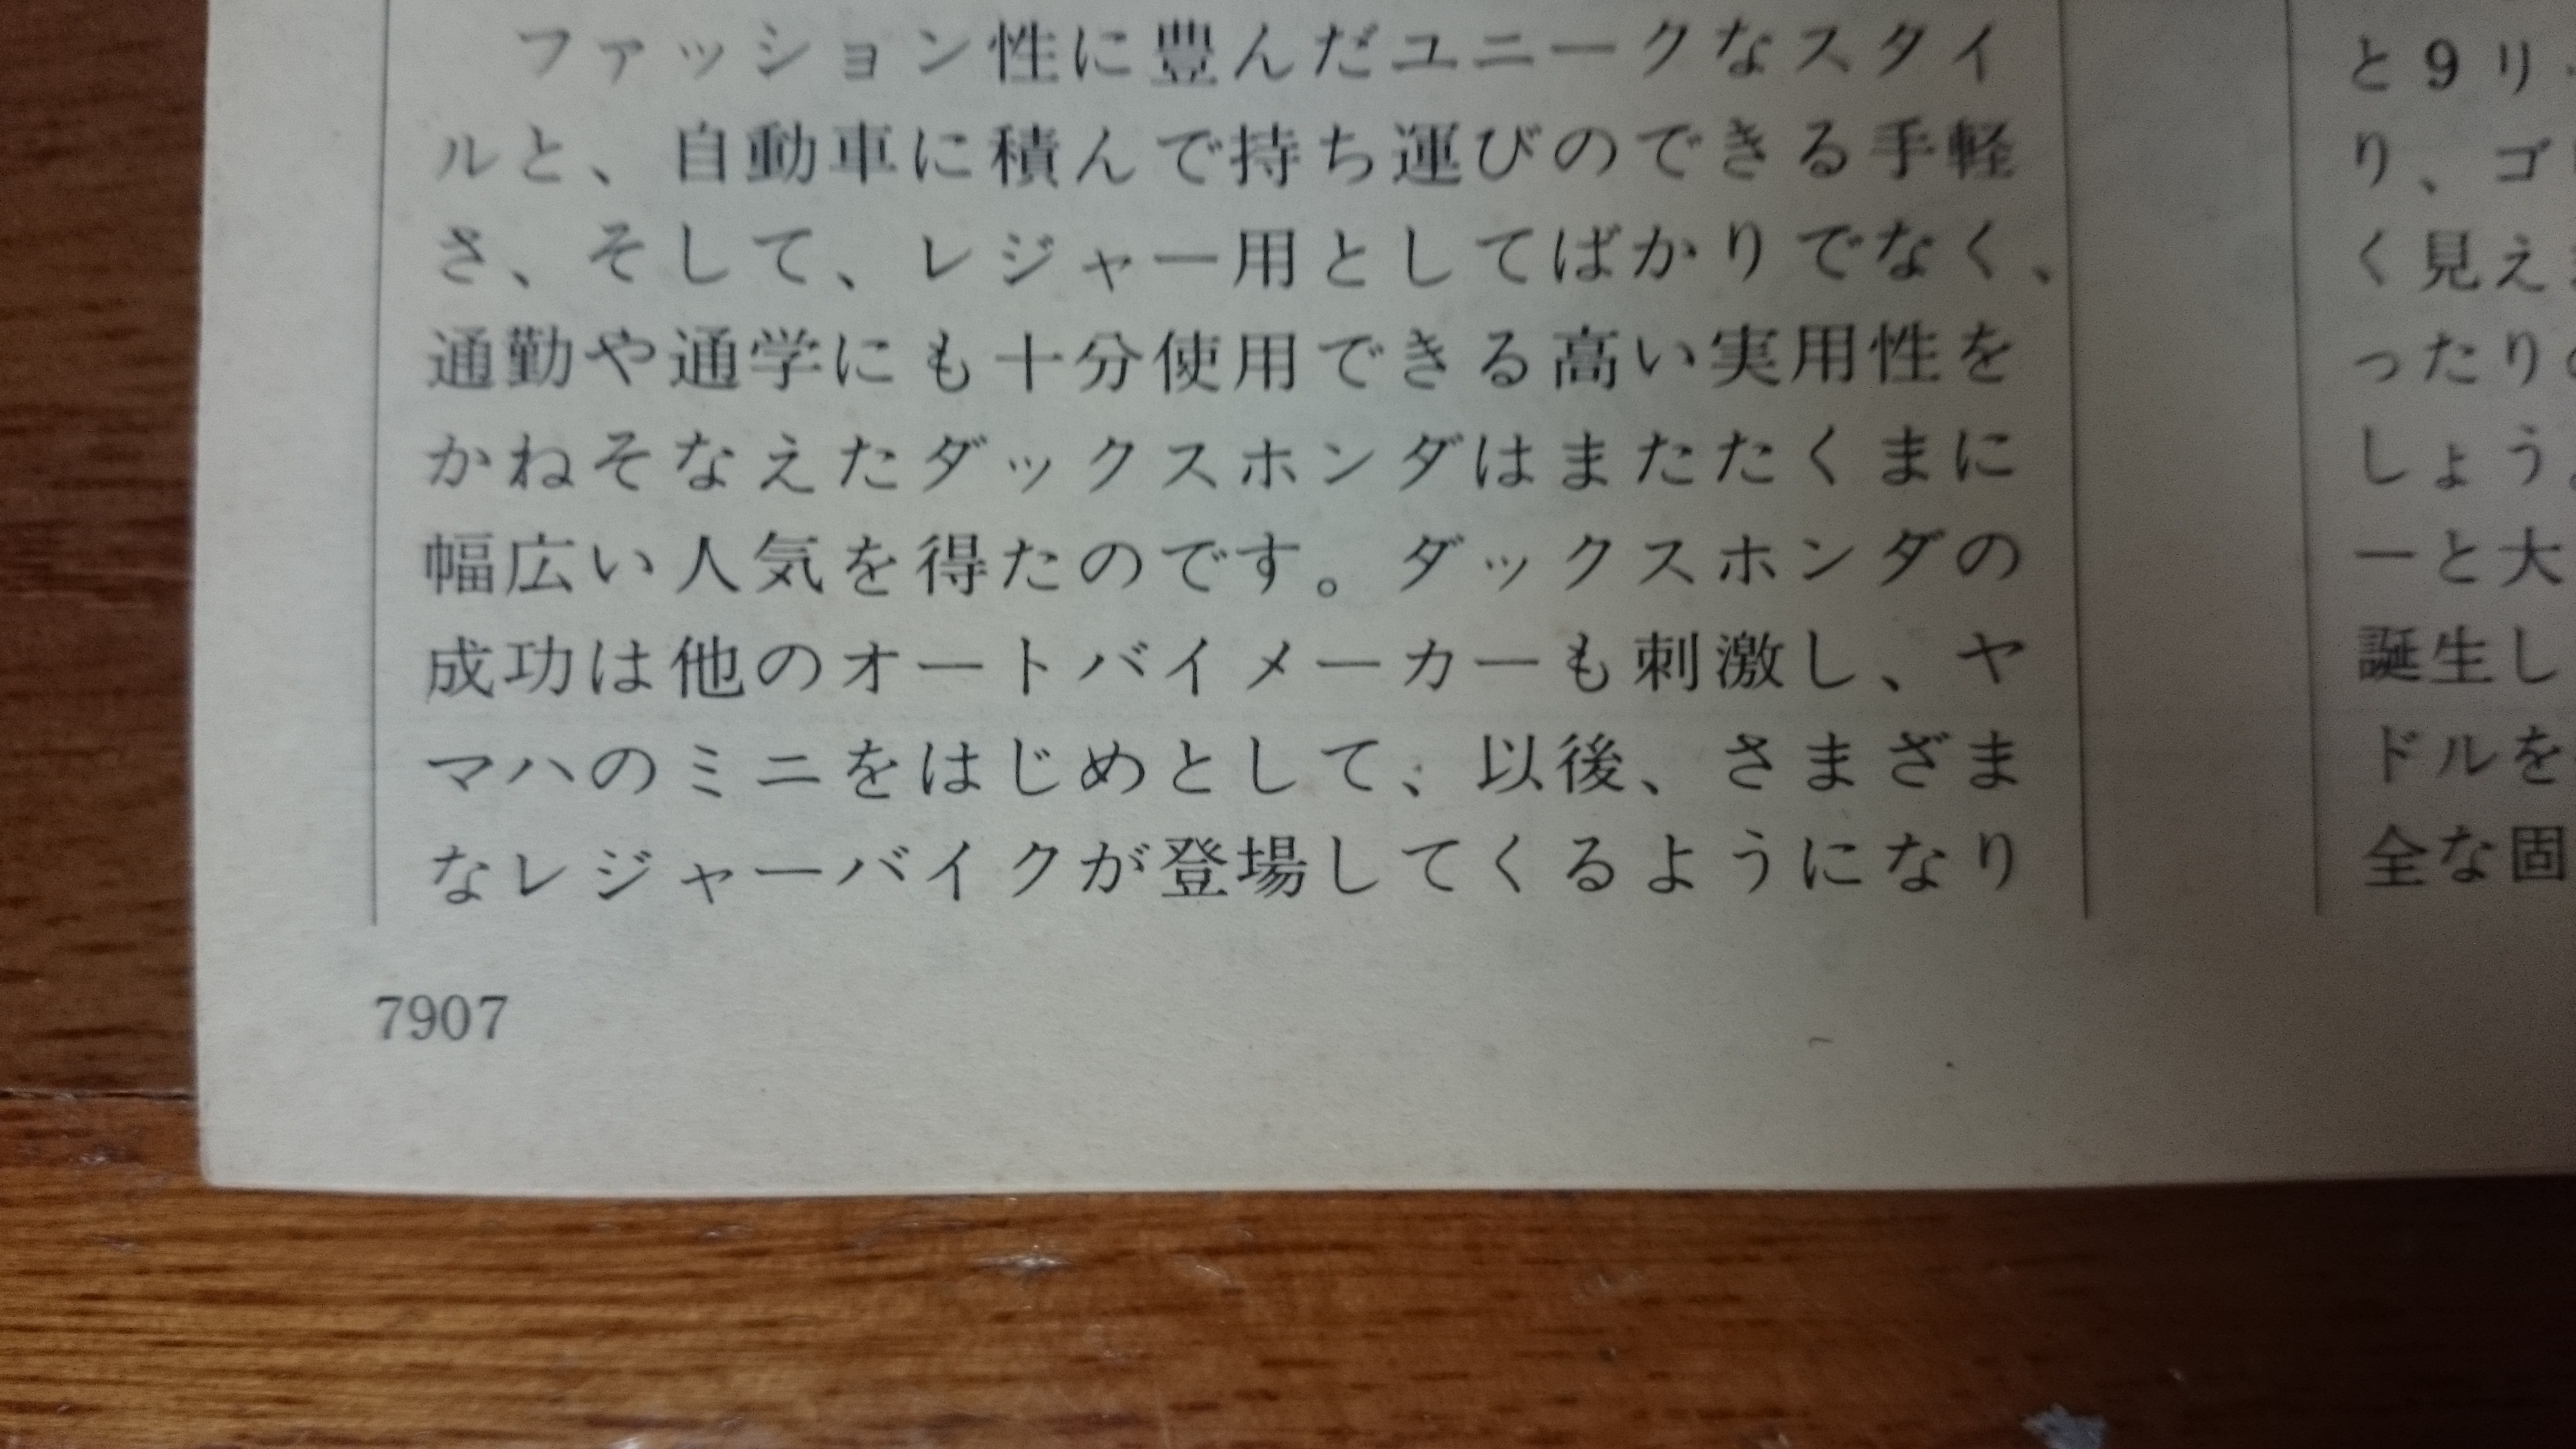 ファッション性に豊んだユニークなスタイ
ルと、自動車に積んで持ち運びのできる手軽
さ、そして、レジャー用としてばかりでなく、
通勤や通学にも十分使用できる高い実用性を
かねそなえたダックスホンダはまたたくまに
幅広い人気を得たのです。ダックスホンダの
成功は他のオートバイメーカーも刺激し、ヤ
マハのミニをはじめとして、以後、さまざま
なレジャーバイクが登場してくるようになり
7907
と9リ
り、ゴ
く見え
ったり
しょう
ーと大
誕生し
ドルを
全な固